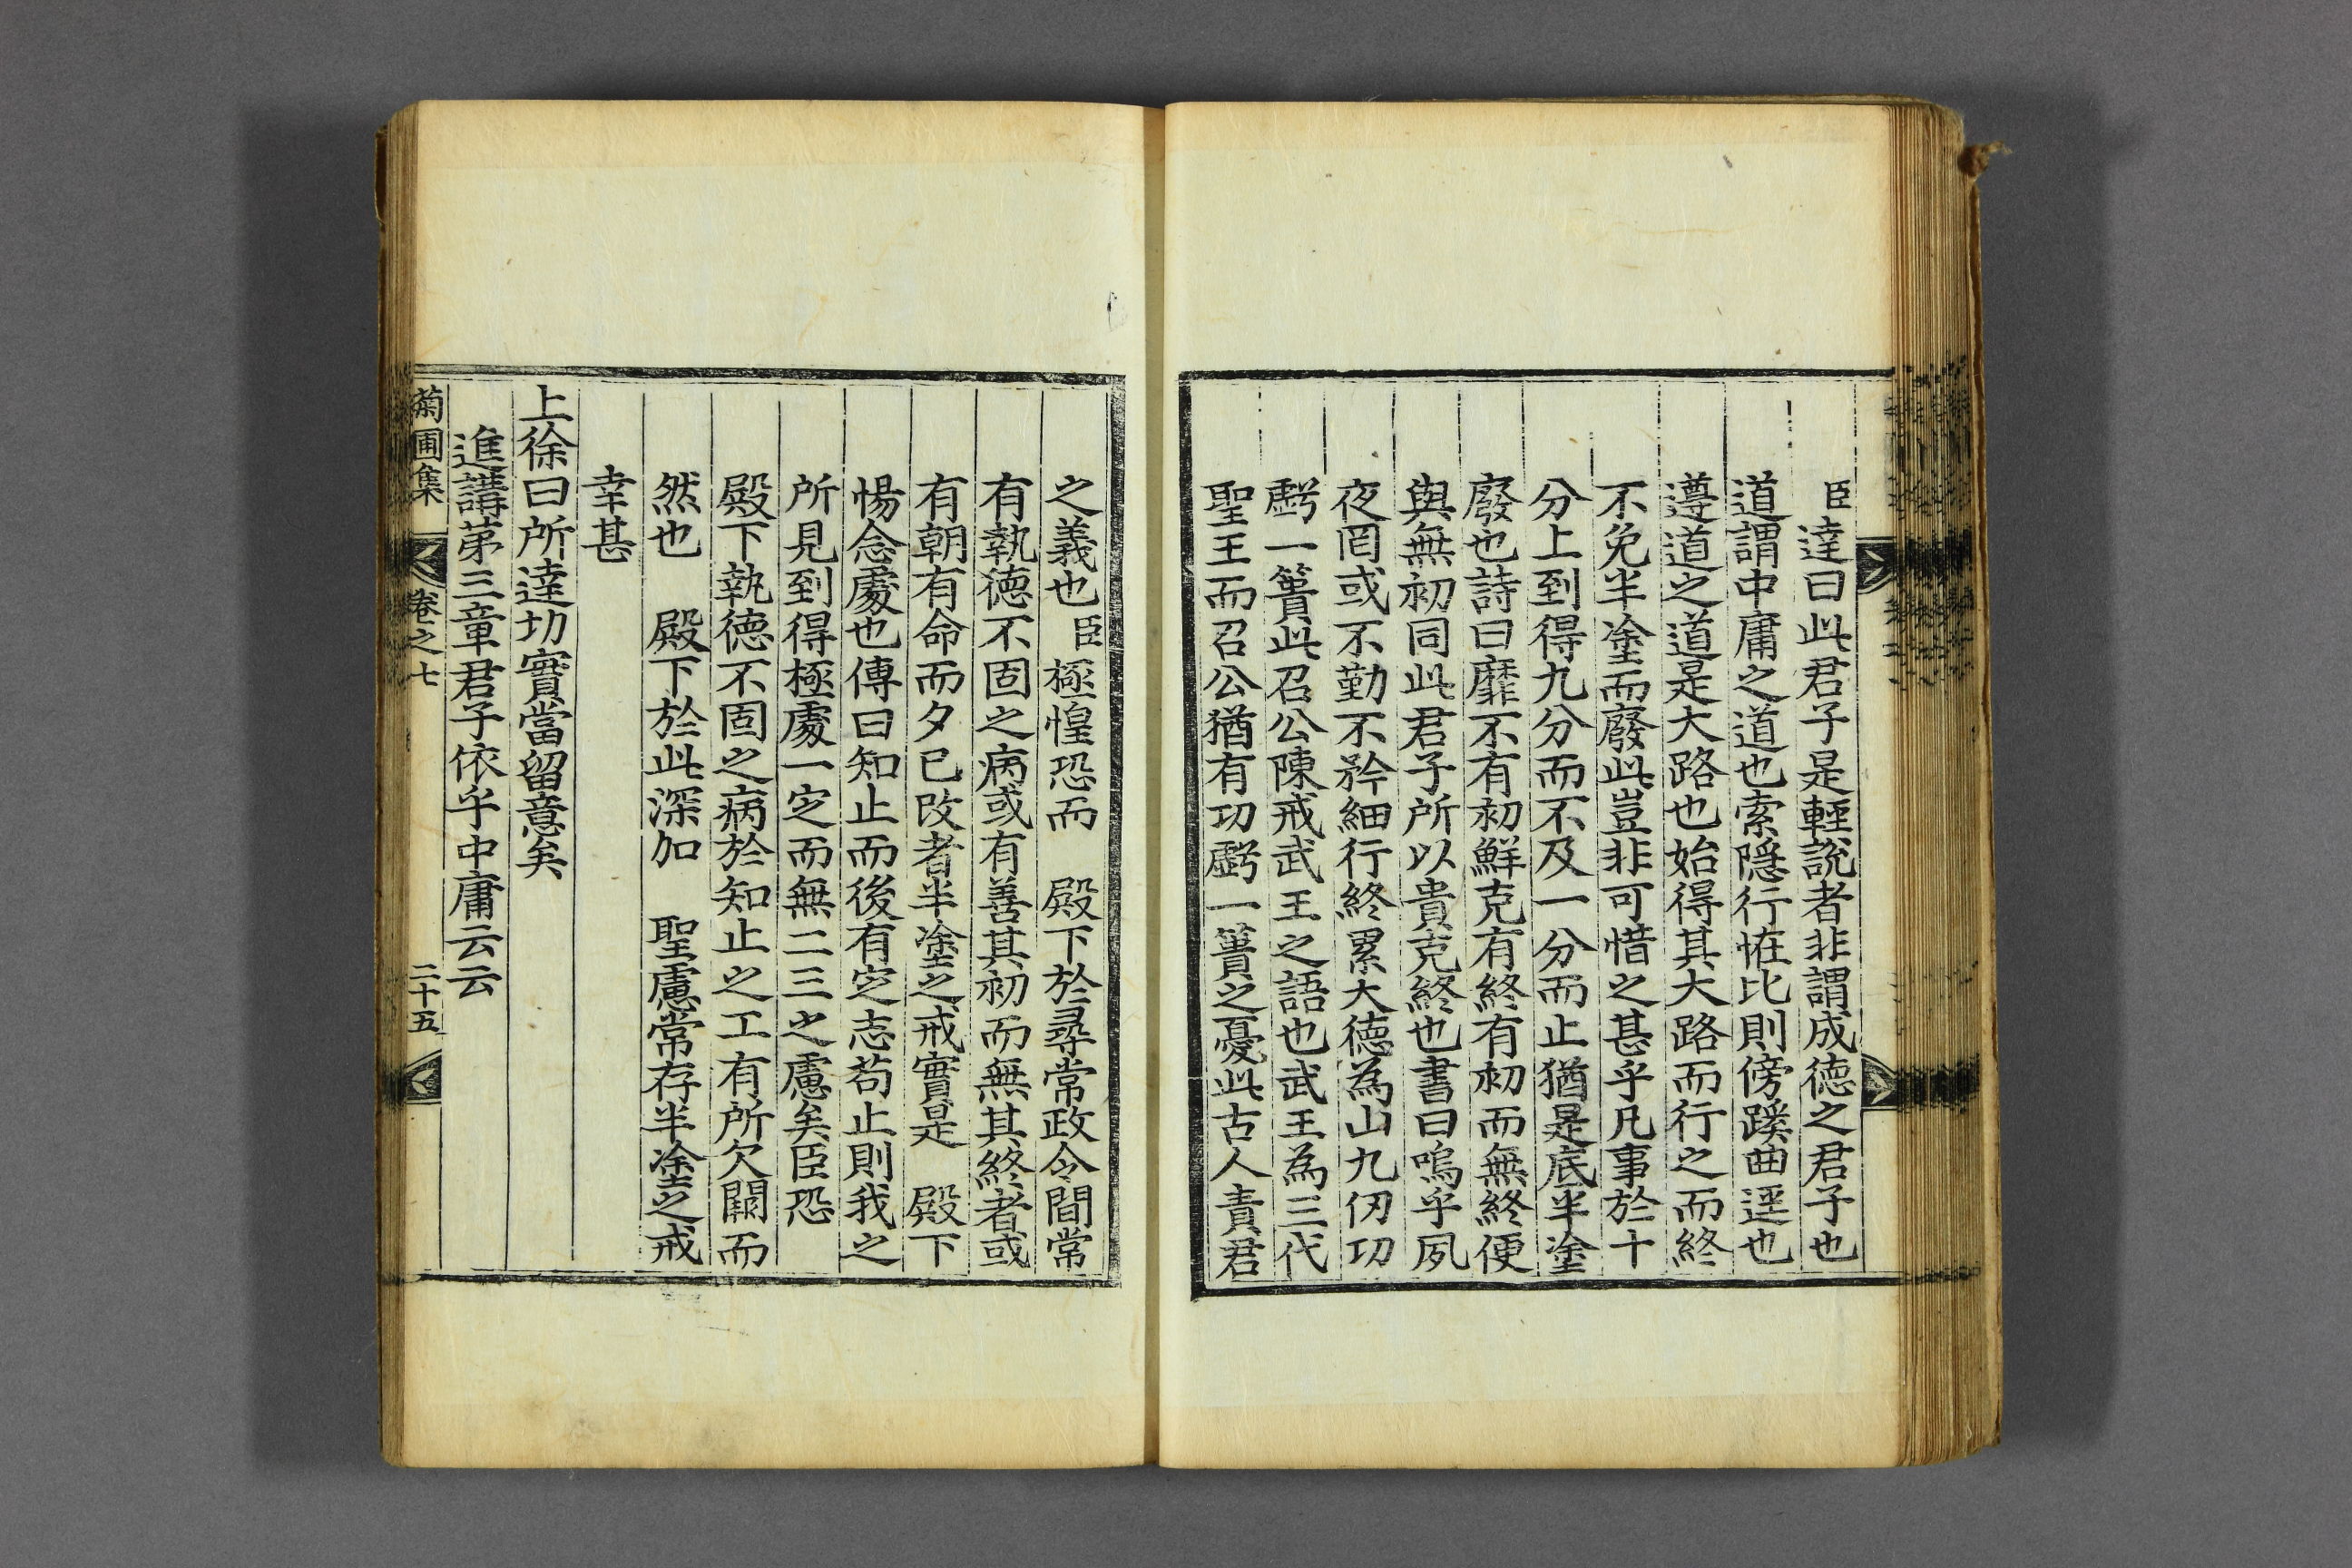 臣達曰此君子是輕說者非謂成德之君子也
道謂中庸之道也索隱行恠比則傍蹊曲逕也
遵道之道是大路也始得其大路而行之而終
不免半塗而廢此豈非可惜之甚乎凡事於十
分上到得九分而不及一分而止猶是底半塗
廢也詩曰靡不有初鮮克有終有初而無終便
與無初同此君子所以貴克終也書曰嗚乎夙
夜罔或不勤不矜細行終累大德為山九仞功
虧一簣此召公陳戒武王之語也武王為三代
聖王而召公猶有功虧一簣之憂此古人責君
之義也臣極惶恐而 殿下於尋常政令間常
有執德不固之病或有善其初而無其終者或
有朝有命而夕已改者半塗之戒實是 殿下
惕念處也傳曰知止而後有定志苟止則我之
所見到得極處一定而無二三之慮矣臣恐
殿下執德不固之病於知止之工有所欠闕而
然也 殿下於此深加 聖慮常存半塗之戒
幸甚
上徐曰所達切實當留意矣
進講第三章君子依乎中庸云云
菊圃集 卷之七 二十五